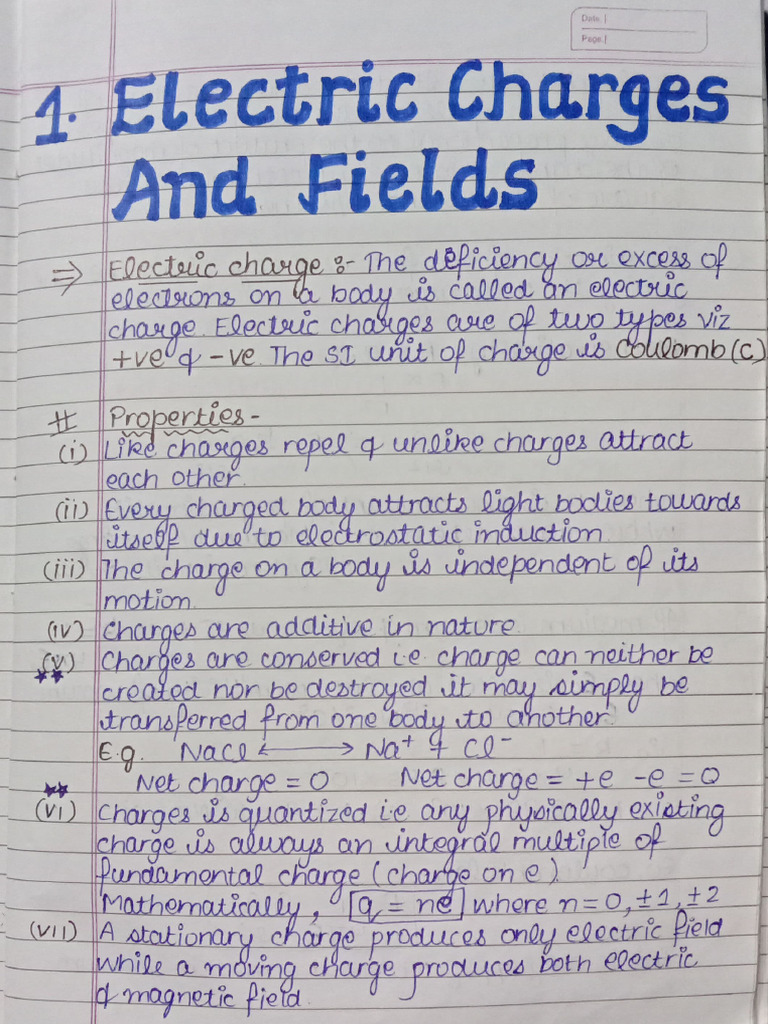 Date.
Page.
1. Electric Charges
And Fields
⇒ Electric charge :- The deficiency or excess of
electrons on a body is called an electric
charge. Electric charges are of two types viz
+ve & -ve. The SI unit of charge is Coulomb (C)
# Properties -
(i) Like charges repel & unlike charges attract
each other.
(ii) Every charged body attracts light bodies towards
itself due to electrostatic induction
(iii) The charge on a body is independent of its
motion.
(iv) Charges are additive in nature.
(v) Charges are conserved i.e. charge can neither be
created nor be destroyed it may simply be
transferred from one body to another.
E.g. NaCl ⟷ Na⁺ + Cl⁻
Net charge = 0 Net charge = +e -e = 0
(vi) Charges is quantized i.e any physically existing
charge is always an integral multiple of
fundamental charge (charge on e).
Mathematically, q = ne where n = 0, ±1, ±2
(vii) A stationary charge produces only electric field
while a moving charge produces both electric
& magnetic field.